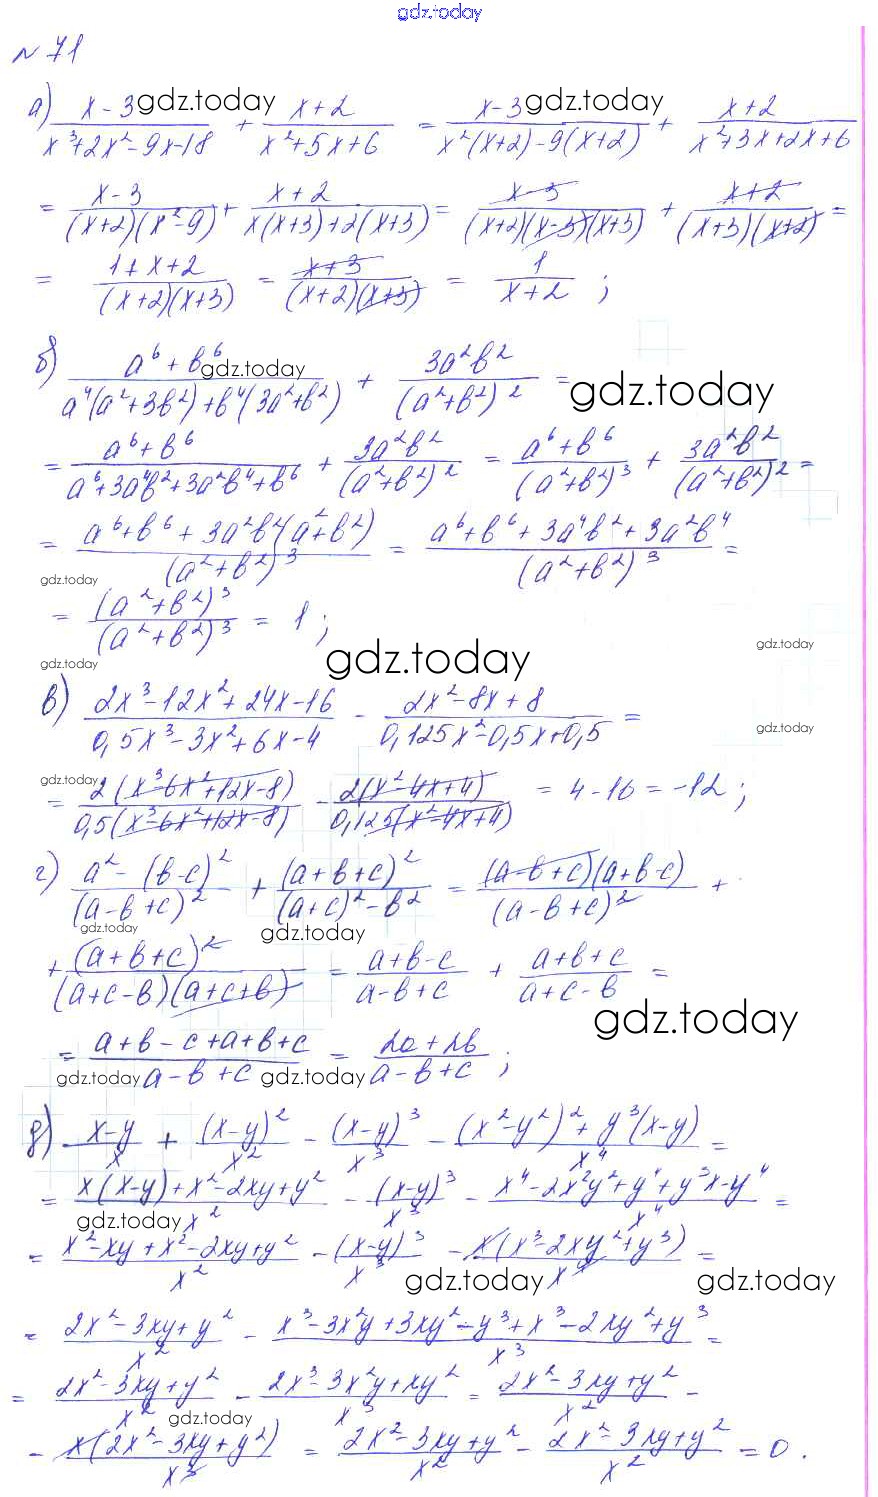 gdz.today
№ 71
а) (x-3)/(x³+2x²-9x-18) + (x+2)/(x²+5x+6) = (x-3)/(x²(x+2)-9(x+2)) + (x+2)/(x²+3x+2x+6)
gdz.today gdz.today
= (x-3)/((x+2)(x²-9)) + (x+2)/(x(x+3)+2(x+3)) = (x-3)/((x+2)(x-3)(x+3)) + (x+2)/((x+3)(x+2)) =
= (1+x+2)/((x+2)(x+3)) = (x+3)/((x+2)(x+3)) = 1/(x+2) ;
б) (a⁶+b⁶)/(a⁴(a²+3b²)+b⁴(3a²+b²)) + 3a²b²/(a²+b²)² =
gdz.today gdz.today
= (a⁶+b⁶)/(a⁶+3a⁴b²+3a²b⁴+b⁶) + 3a²b²/(a²+b²)² = (a⁶+b⁶)/(a²+b²)³ + 3a²b²/(a²+b²)² =
= (a⁶+b⁶+3a²b²(a²+b²))/(a²+b²)³ = (a⁶+b⁶+3a⁴b²+3a²b⁴)/(a²+b²)³ =
gdz.today
= (a²+b²)³/(a²+b²)³ = 1 ;
gdz.today gdz.today gdz.today
в) (2x³-12x²+24x-16)/(0,5x³-3x²+6x-4) - (2x²-8x+8)/(0,125x²-0,5x+0,5) =
gdz.today
gdz.today
= 2(x³-6x²+12x-8)/(0,5(x³-6x²+12x-8)) - 2(x²-4x+4)/(0,125(x²-4x+4)) = 4-16 = -12 ;
г) (a²-(b-c)²)/(a-b+c)² + (a+b+c)²/((a+c)²-b²) = (a-b+c)(a+b-c)/(a-b+c)² +
gdz.today gdz.today
+ (a+b+c)²/((a+c-b)(a+c+b)) = (a+b-c)/(a-b+c) + (a+b+c)/(a+c-b) =
gdz.today
= (a+b-c+a+b+c)/(a-b+c) = (2a+2b)/(a-b+c) ;
gdz.today gdz.today
д) (x-y)/x + (x-y)²/x² - (x-y)³/x³ - ((x²-y²)²+y³(x-y))/x⁴ =
= (x(x-y)+x²-2xy+y²)/x² - (x-y)³/x³ - (x⁴-2x²y²+y⁴+y³x-y⁴)/x⁴ =
gdz.today
= (x²-xy+x²-2xy+y²)/x² - (x-y)³/x³ - x(x³-2xy²+y³)/x⁴ =
gdz.today gdz.today
= (2x²-3xy+y²)/x² - (x³-3x²y+3xy²-y³+x³-2xy²+y³)/x³ =
= (2x²-3xy+y²)/x² - (2x³-3x²y+xy²)/x³ = (2x²-3xy+y²)/x² -
gdz.today
- x(2x²-3xy+y²)/x³ = (2x²-3xy+y²)/x² - (2x²-3xy+y²)/x² = 0 .